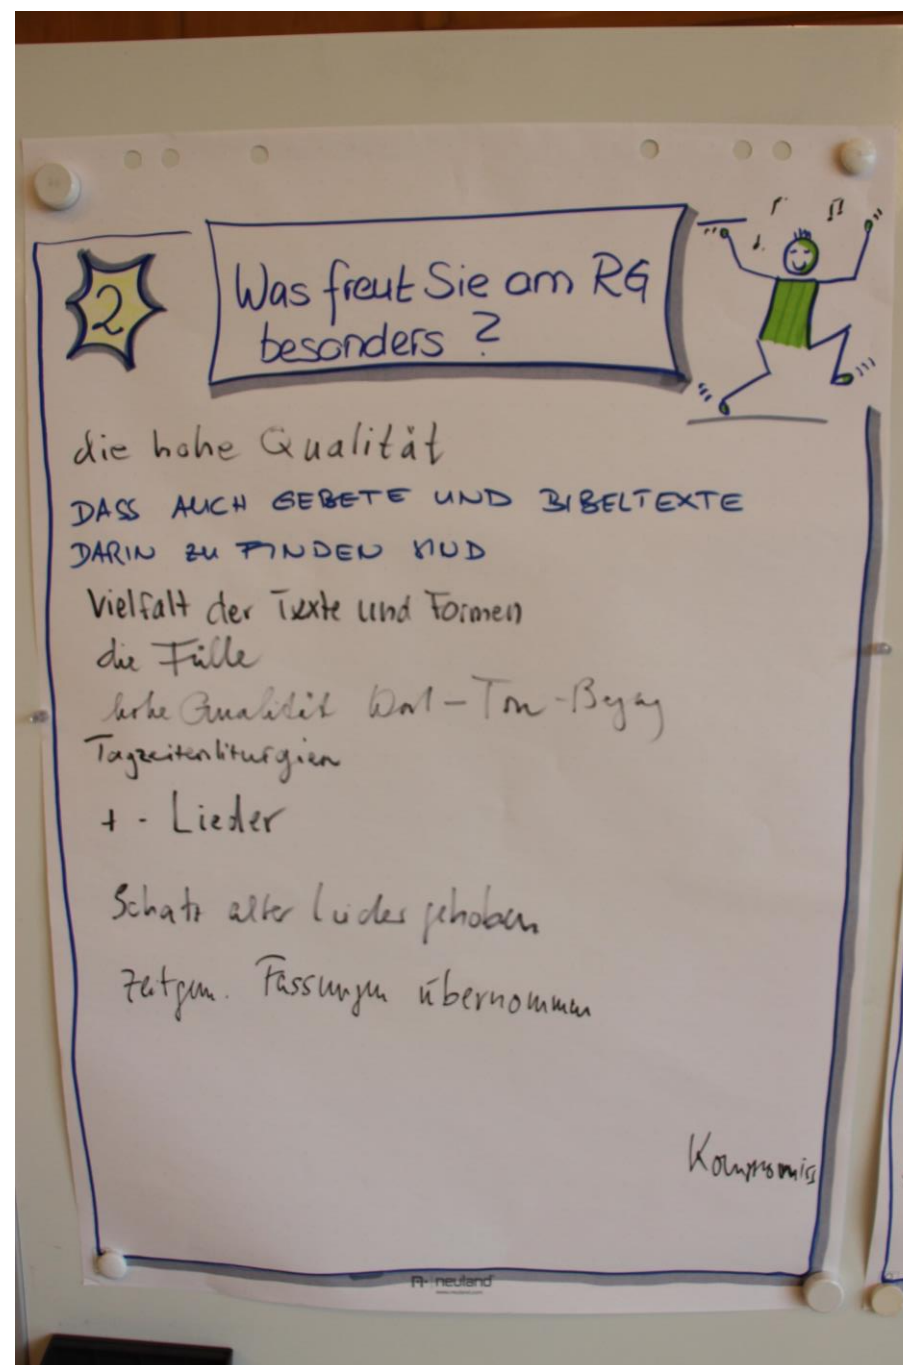 2
Was freut Sie am RG
besonders ?
die hohe Qualität
DASS AUCH GEBETE UND BIBELTEXTE
DARIN ZU FINDEN SIND
Vielfalt der Texte und Formen
die Fülle
hohe Qualität Wort-Ton-Bezug
Tagzeitenliturgien
+ - Lieder
Schatz alter Lieder gehoben
zeitgen. Fassungen übernommen
Kompromiss
neuland